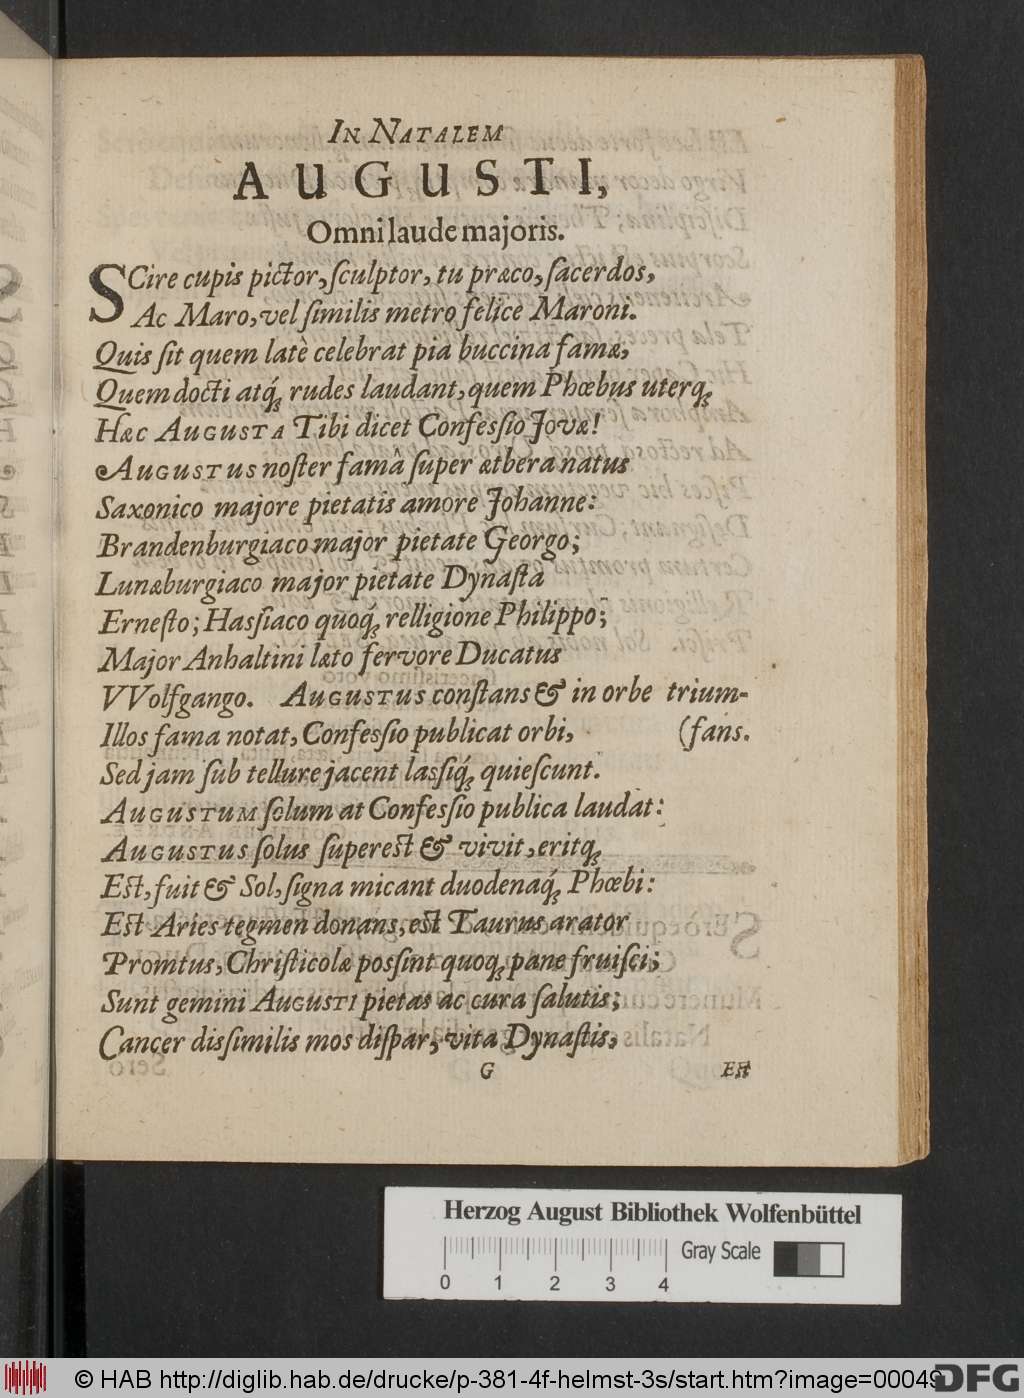 IN NATALEM
AUGUSTI,
Omni laude majoris.
SCire cupis pictor, ſculptor, tu præco, ſacerdos,
Ac Maro, vel ſimilis metro felice Maroni.
Quis ſit quem latè celebrat pia buccina famæ,
Quem docti atq́; rudes laudant, quem Phœbus uterq;
Hæc AUGUSTA Tibi dicet Confeſſio Jovæ!
AUGUSTUS noſter famâ ſuper æthera natus
Saxonico majore pietatis amore Johanne:
Brandenburgiaco major pietate Georgo;
Lunæburgiaco major pietate Dynaſta
Erneſto; Haſſiaco quoq́; relligione Philippo;
Major Anhaltini læto fervore Ducatus
VVolfgango. AUGUSTUS conſtans & in orbe trium-
Illos fama notat, Confeſſio publicat orbi, (fans.
Sed jam ſub tellure jacent laſſiq́; quieſcunt.
AUGUSTUM ſolum at Confeſſio publica laudat:
AUGUSTUS ſolus ſupereſt & vivit, eritq;
Eſt, fuit & Sol, ſigna micant duodenaq́; Phœbi:
Eſt Aries tegmen donans, eſt Taurus arator
Promtus, Chriſticolæ poſſint quoq; pane fruiſci;
Sunt gemini AUGUSTI pietas ac cura ſalutis;
Cancer diſſimilis mos diſpar, vita Dynaſtis,
G Eſt
Herzog August Bibliothek Wolfenbüttel
Gray Scale
0 1 2 3 4
© HAB http://diglib.hab.de/drucke/p-381-4f-helmst-3s/start.htm?image=00049
DFG